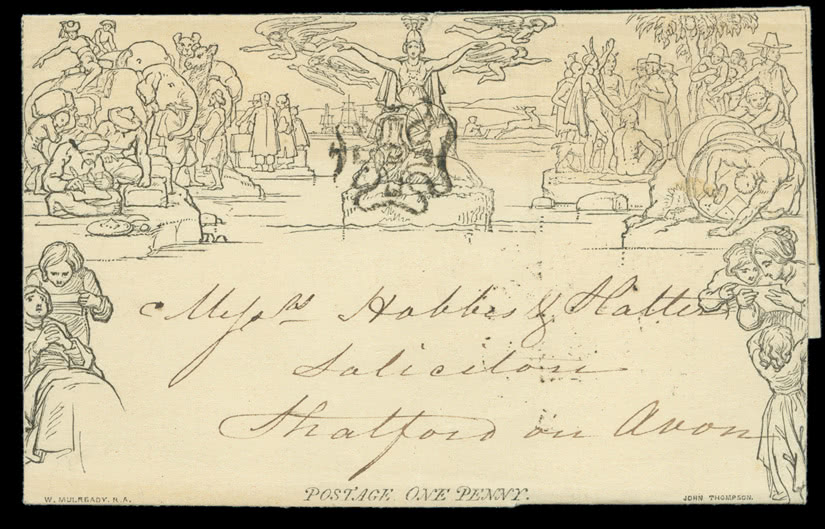 Messrs Hobbes & Slatter
Solicitors
Stratford on Avon
POSTAGE ONE PENNY.
W. MULREADY. R.A.
JOHN THOMPSON.